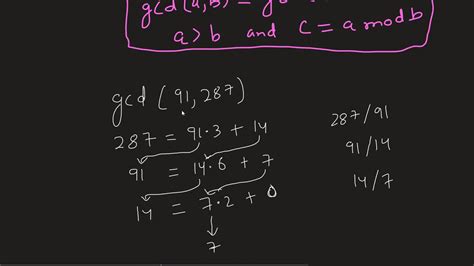 gcd(a,b) = g
a > b and c = a mod b
gcd (91, 287)
287 = 91·3 + 14
91 = 14·6 + 7
14 = 7·2 + 0
7
287/91
91/14
14/7